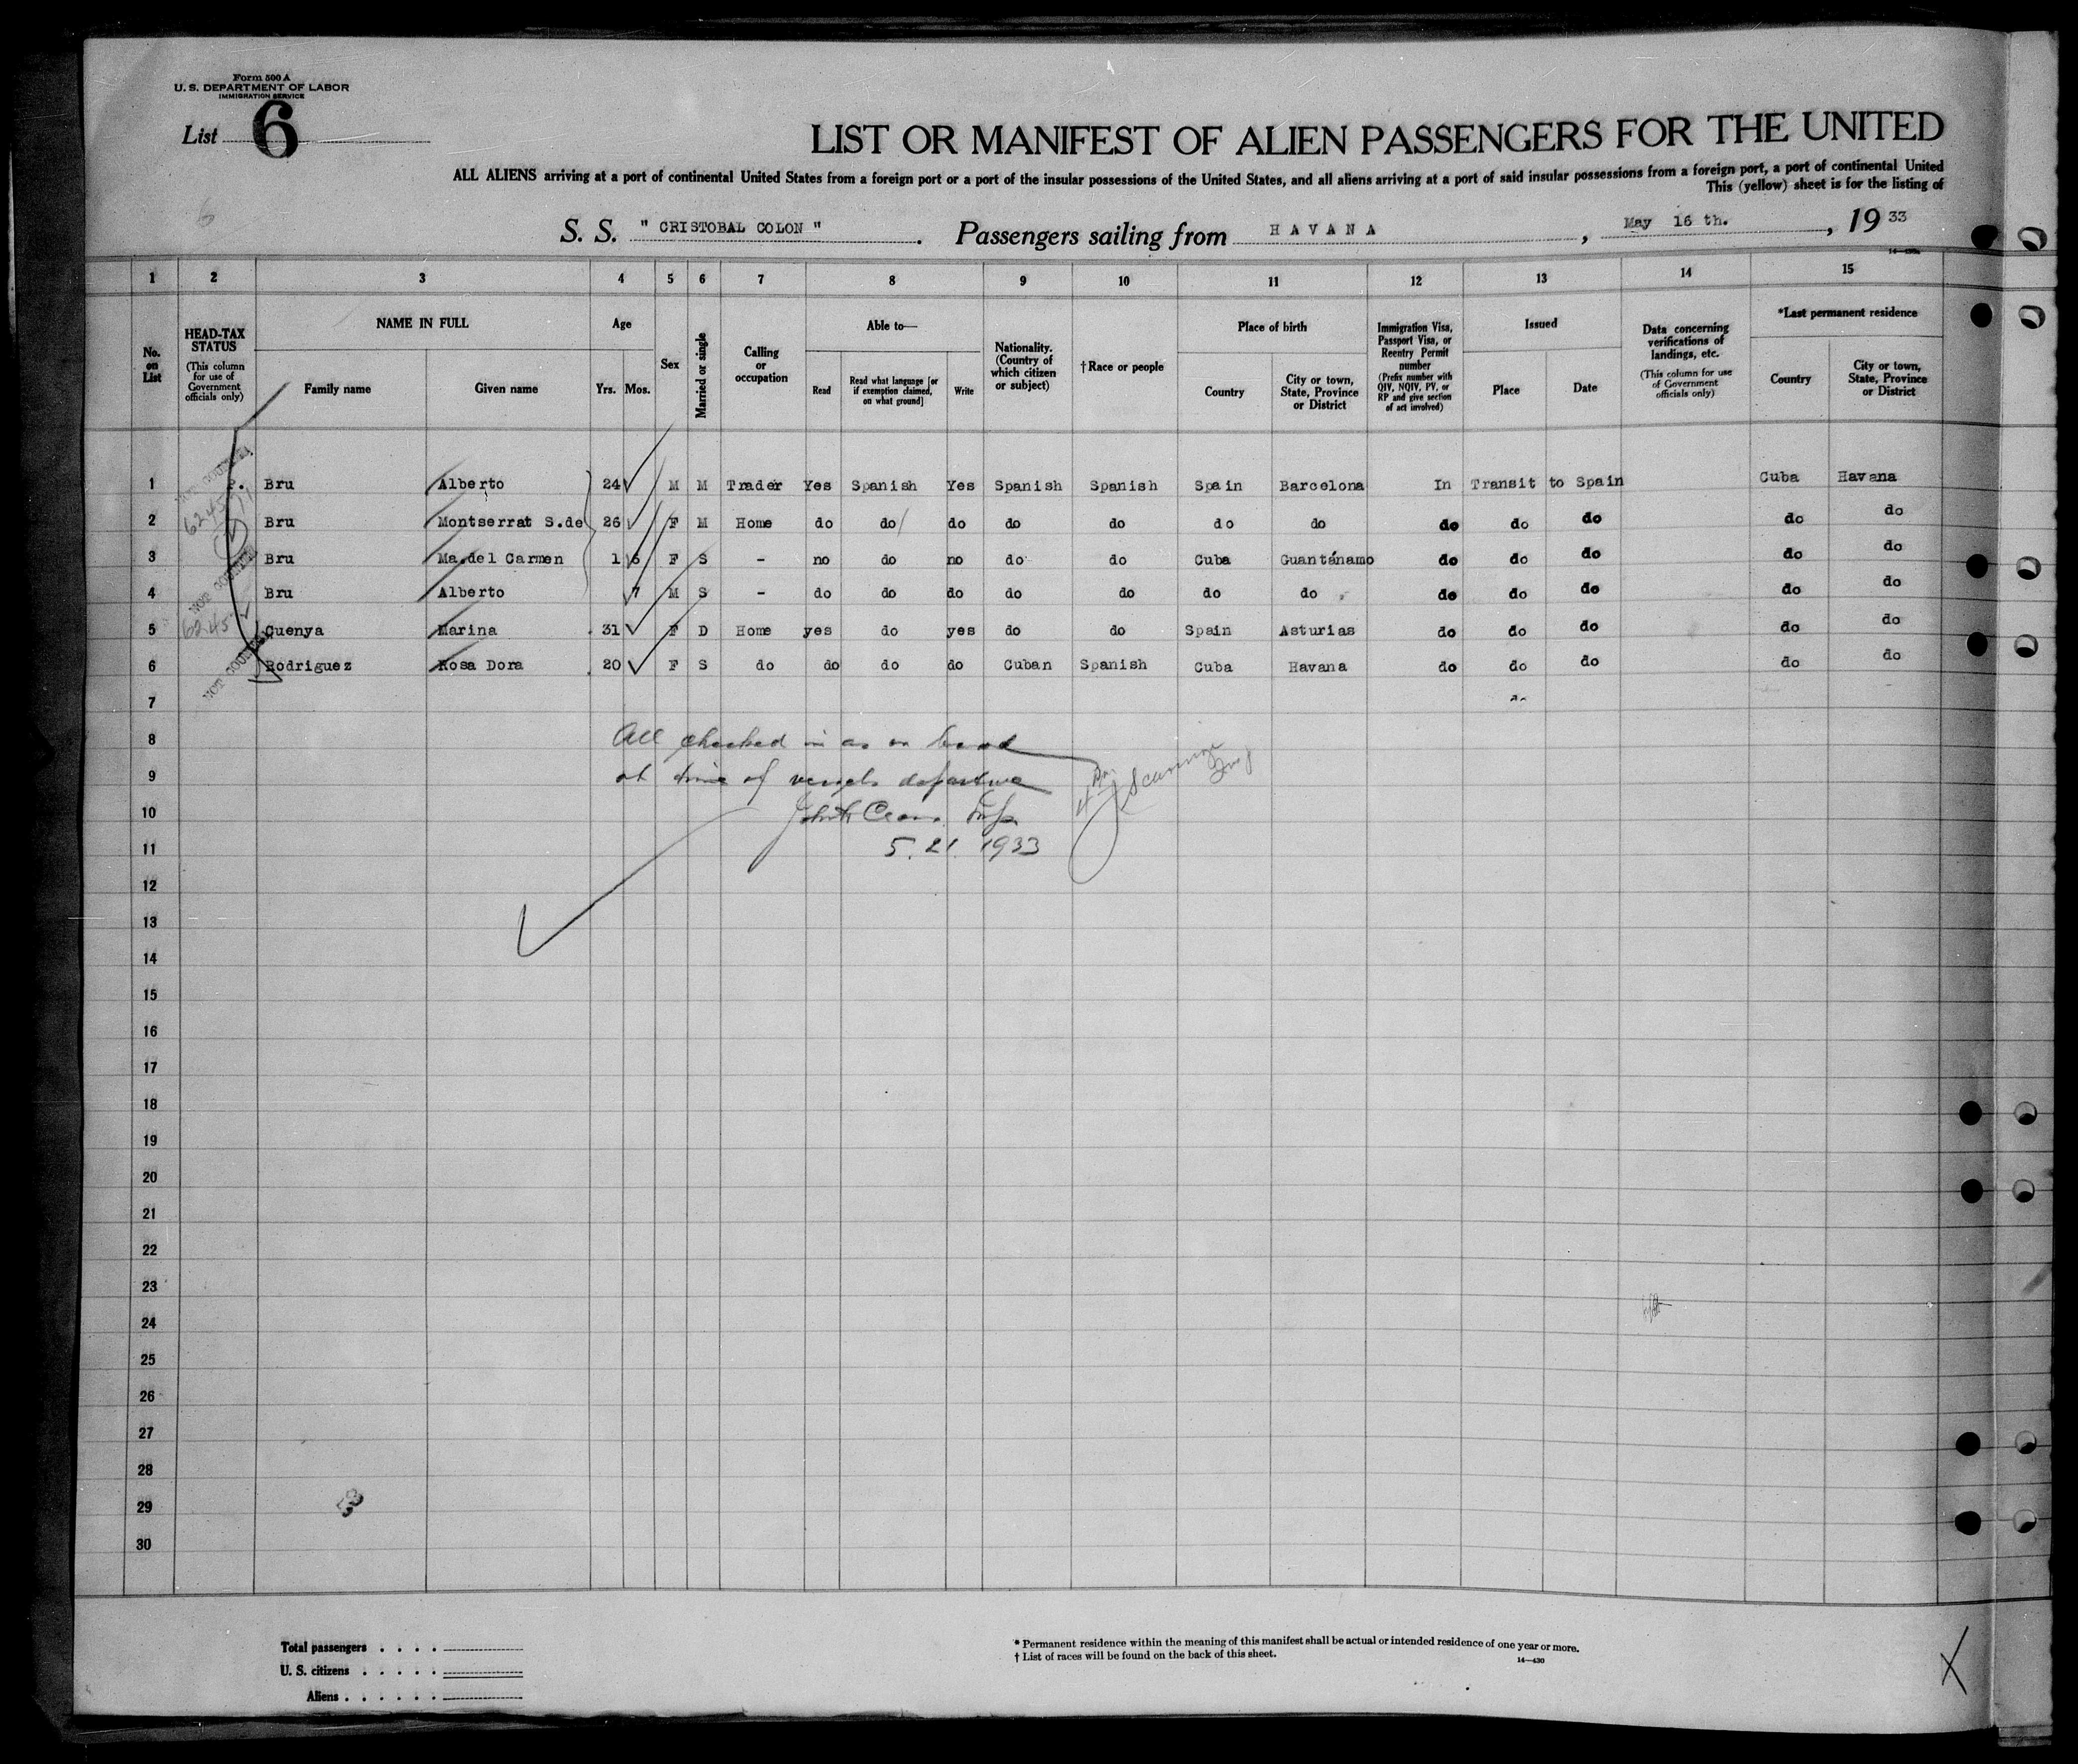 Form 500 A
U. S. DEPARTMENT OF LABOR
IMMIGRATION SERVICE
List 6
LIST OR MANIFEST OF ALIEN PASSENGERS FOR THE UNITED
ALL ALIENS arriving at a port of continental United States from a foreign port or a port of the insular possessions of the United States, and all aliens arriving at a port of said insular possessions from a foreign port, a port of continental United
This (yellow) sheet is for the listing of
6
S. S. " CRISTOBAL COLON " . Passengers sailing from HAVANA , May 16 th. , 19 33
1 2 3 4 5 6 7 8 9 10 11 12 13 14 15
No. on List
HEAD-TAX STATUS (This column for use of Government officials only)
NAME IN FULL
Family name Given name
Age
Yrs. Mos.
Sex
Married or single
Calling or occupation
Able to—
Read Read what language [or if exemption claimed, on what ground] Write
Nationality. (Country of which citizen or subject)
†Race or people
Place of birth
Country City or town, State, Province or District
Immigration Visa, Passport Visa, or Reentry Permit number (Prefix number with QIV, NQIV, PV, or RP and give section of act involved)
Issued
Place Date
Data concerning verifications of landings, etc. (This column for use of Government officials only)
*Last permanent residence
Country City or town, State, Province or District
1 Bru Alberto 24 M M Trader Yes Spanish Yes Spanish Spanish Spain Barcelona In Transit to Spain Cuba Havana
2 Bru Montserrat S.de 26 F M Home do do do do do do do do do do do do
3 Bru Ma.del Carmen 1 6 F S - no do no do do Cuba Guantánamo do do do do do
4 Bru Alberto 7 M S - do do do do do do do do do do do do
5 Cuenya Marina 31 F D Home yes do yes do do Spain Asturias do do do do do
6 Rodriguez Rosa Dora 20 F S do do do do Cuban Spanish Cuba Havana do do do do do
7
8 All checked in as on board
9 at time of vessels departure
10 Insp.
11 5. 21. 1933
12
13
14
15
16
17
18
19
20
21
22
23
24
25
26
27
28
29
30
NOT COUNTED
Total passengers . . . .
U. S. citizens . . . . .
Aliens . . . . . .
* Permanent residence within the meaning of this manifest shall be actual or intended residence of one year or more.
† List of races will be found on the back of this sheet.
14—430